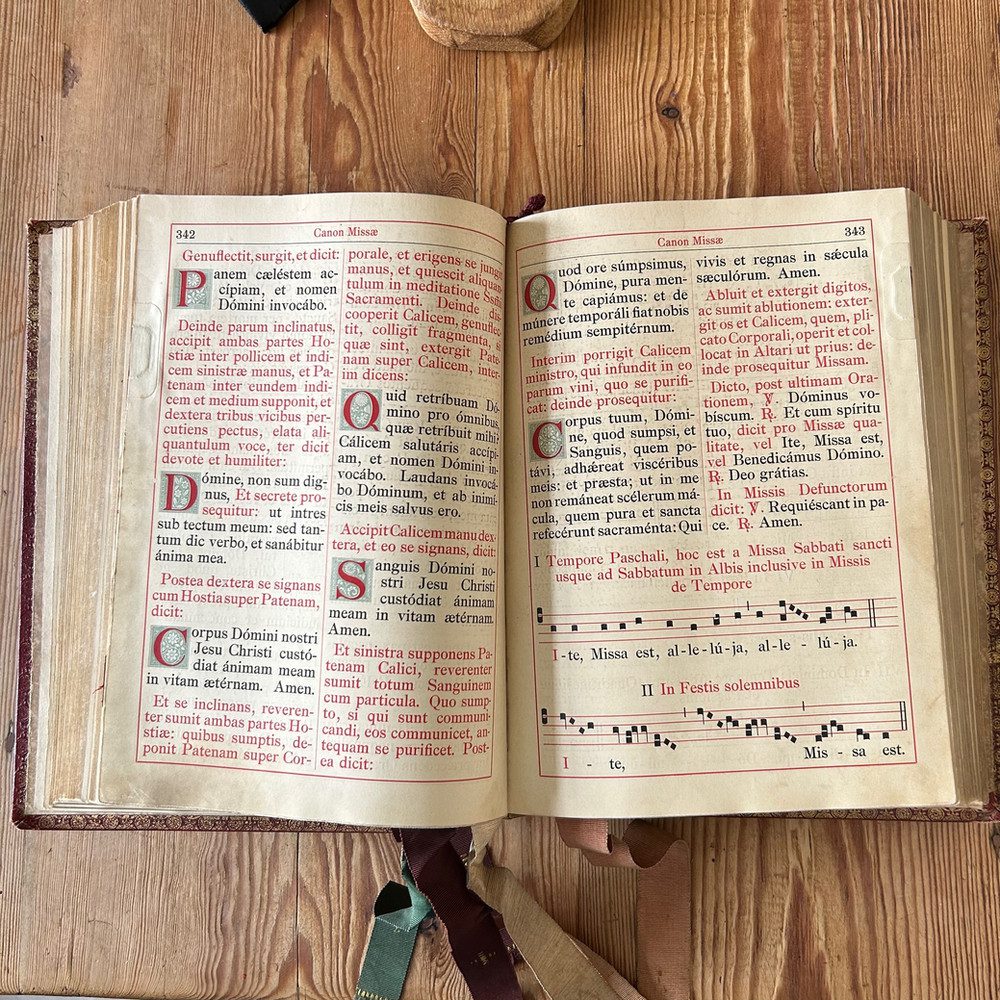 342
Canon Missæ
Genuflectit, surgit, et dicit:
Panem cæléstem ac-
cípiam, et nomen
Dómini invocábo.
Deinde parum inclinatus,
accipit ambas partes Ho-
stiæ inter pollicem et indi-
cem sinistræ manus, et Pa-
tenam inter eundem indi-
cem et medium supponit, et
dextera tribus vicibus per-
cutiens pectus, elata ali-
quantulum voce, ter dicit
devote et humiliter:
Dómine, non sum dig-
nus, Et secrete pro-
sequitur: ut intres
sub tectum meum: sed tan-
tum dic verbo, et sanábitur
ánima mea.
Postea dextera se signans
cum Hostia super Patenam,
dicit:
Corpus Dómini nostri
Jesu Christi custó-
diat ánimam meam
in vitam ætérnam. Amen.
Et se inclinans, reveren-
ter sumit ambas partes Ho-
stiæ: quibus sumptis, de-
ponit Patenam super Cor-
porale, et erigens se jungit
manus, et quiescit aliquan-
tulum in meditatione Ssmi
Sacramenti. Deinde dis-
cooperit Calicem, genuflec-
tit, colligit fragmenta, si
quæ sint, extergit Pate-
nam super Calicem, inter-
im dicens:
Quid retríbuam Dó-
mino pro ómnibus,
quæ retríbuit mihi?
Cálicem salutáris accípi-
am, et nomen Dómini in-
vocábo. Laudans invocá-
bo Dóminum, et ab inimí-
cis meis salvus ero.
Accipit Calicem manu dex-
tera, et eo se signans, dicit:
Sanguis Dómini no-
stri Jesu Christi
custódiat ánimam
meam in vitam ætérnam.
Amen.
Et sinistra supponens Pa-
tenam Calici, reverenter
sumit totum Sanguinem
cum particula. Quo sump-
to, si qui sunt communi-
candi, eos communicet, an-
tequam se purificet. Post-
ea dicit:
Canon Missæ
343
Quod ore súmpsimus,
Dómine, pura men-
te capiámus: et de
múnere temporáli fiat nobis
remédium sempitérnum.
Interim porrigit Calicem
ministro, qui infundit in eo
parum vini, quo se purifi-
cat: deinde prosequitur:
Corpus tuum, Dómi-
ne, quod sumpsi, et
Sanguis, quem po-
távi, adhǽreat viscéribus
meis: et præsta; ut in me
non remáneat scélerum má-
cula, quem pura et sancta
refecérunt sacraménta: Qui
vivis et regnas in sǽcula
sæculórum. Amen.
Abluit et extergit digitos,
ac sumit ablutionem: exter-
git os et Calicem, quem, pli-
cato Corporali, operit et col-
locat in Altari ut prius: de-
inde prosequitur Missam.
Dicto, post ultimam Ora-
tionem, ℣. Dóminus vo-
bíscum. ℟. Et cum spíritu
tuo, dicit pro Missæ qua-
litate, vel Ite, Missa est,
vel Benedicámus Dómino.
℟. Deo grátias.
In Missis Defunctorum
dicit: ℣. Requiéscant in pa-
ce. ℟. Amen.
I Tempore Paschali, hoc est a Missa Sabbati sancti
usque ad Sabbatum in Albis inclusive in Missis
de Tempore
I-te, Missa est, al-le-lú-ja, al-le - lú-ja.
II In Festis solemnibus
I - te, Mis - sa est.